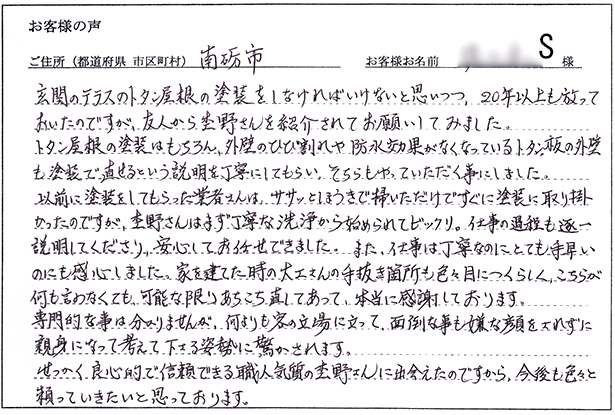 お客様の声
ご住所（都道府県 市区町村） 南砺市 お客様お名前 S 様
玄関のテラスのトタン屋根の塗装をしなければいけないと思いつつ、20年以上も放って
おいたのですが、友人から杢野さんを紹介されてお願いしてみました。
トタン屋根の塗装はもちろん、外壁のひび割れや防水効果がなくなっているトタン板の外壁
も塗装で直せるという説明を丁寧にしてもらい、そちらもやっていただく事にしました。
以前に塗装をしてもらった業者さんは、ササッとほうきで掃いただけですぐに塗装に取り掛
かったのですが、杢野さんはまず丁寧な洗浄から始められてビックリ。仕事の過程も逐一
説明してくださり、安心してお任せできました。また、仕事は丁寧なのにとても手早い
のにも感心しました。家を建てた時の大工さんの手抜き箇所も色々目につくらしく、こちらが
何も言わなくても、可能な限りあちこち直してあって、本当に感謝しております。
専門的な事は分りませんが、何よりも客の立場に立って、面倒な事も嫌な顔をされずに
親身になって考えて下さる姿勢に驚かされます。
せっかく良心的で信頼できる職人気質の杢野さんに出会えたのですから、今後も色々と
頼っていきたいと思っております。